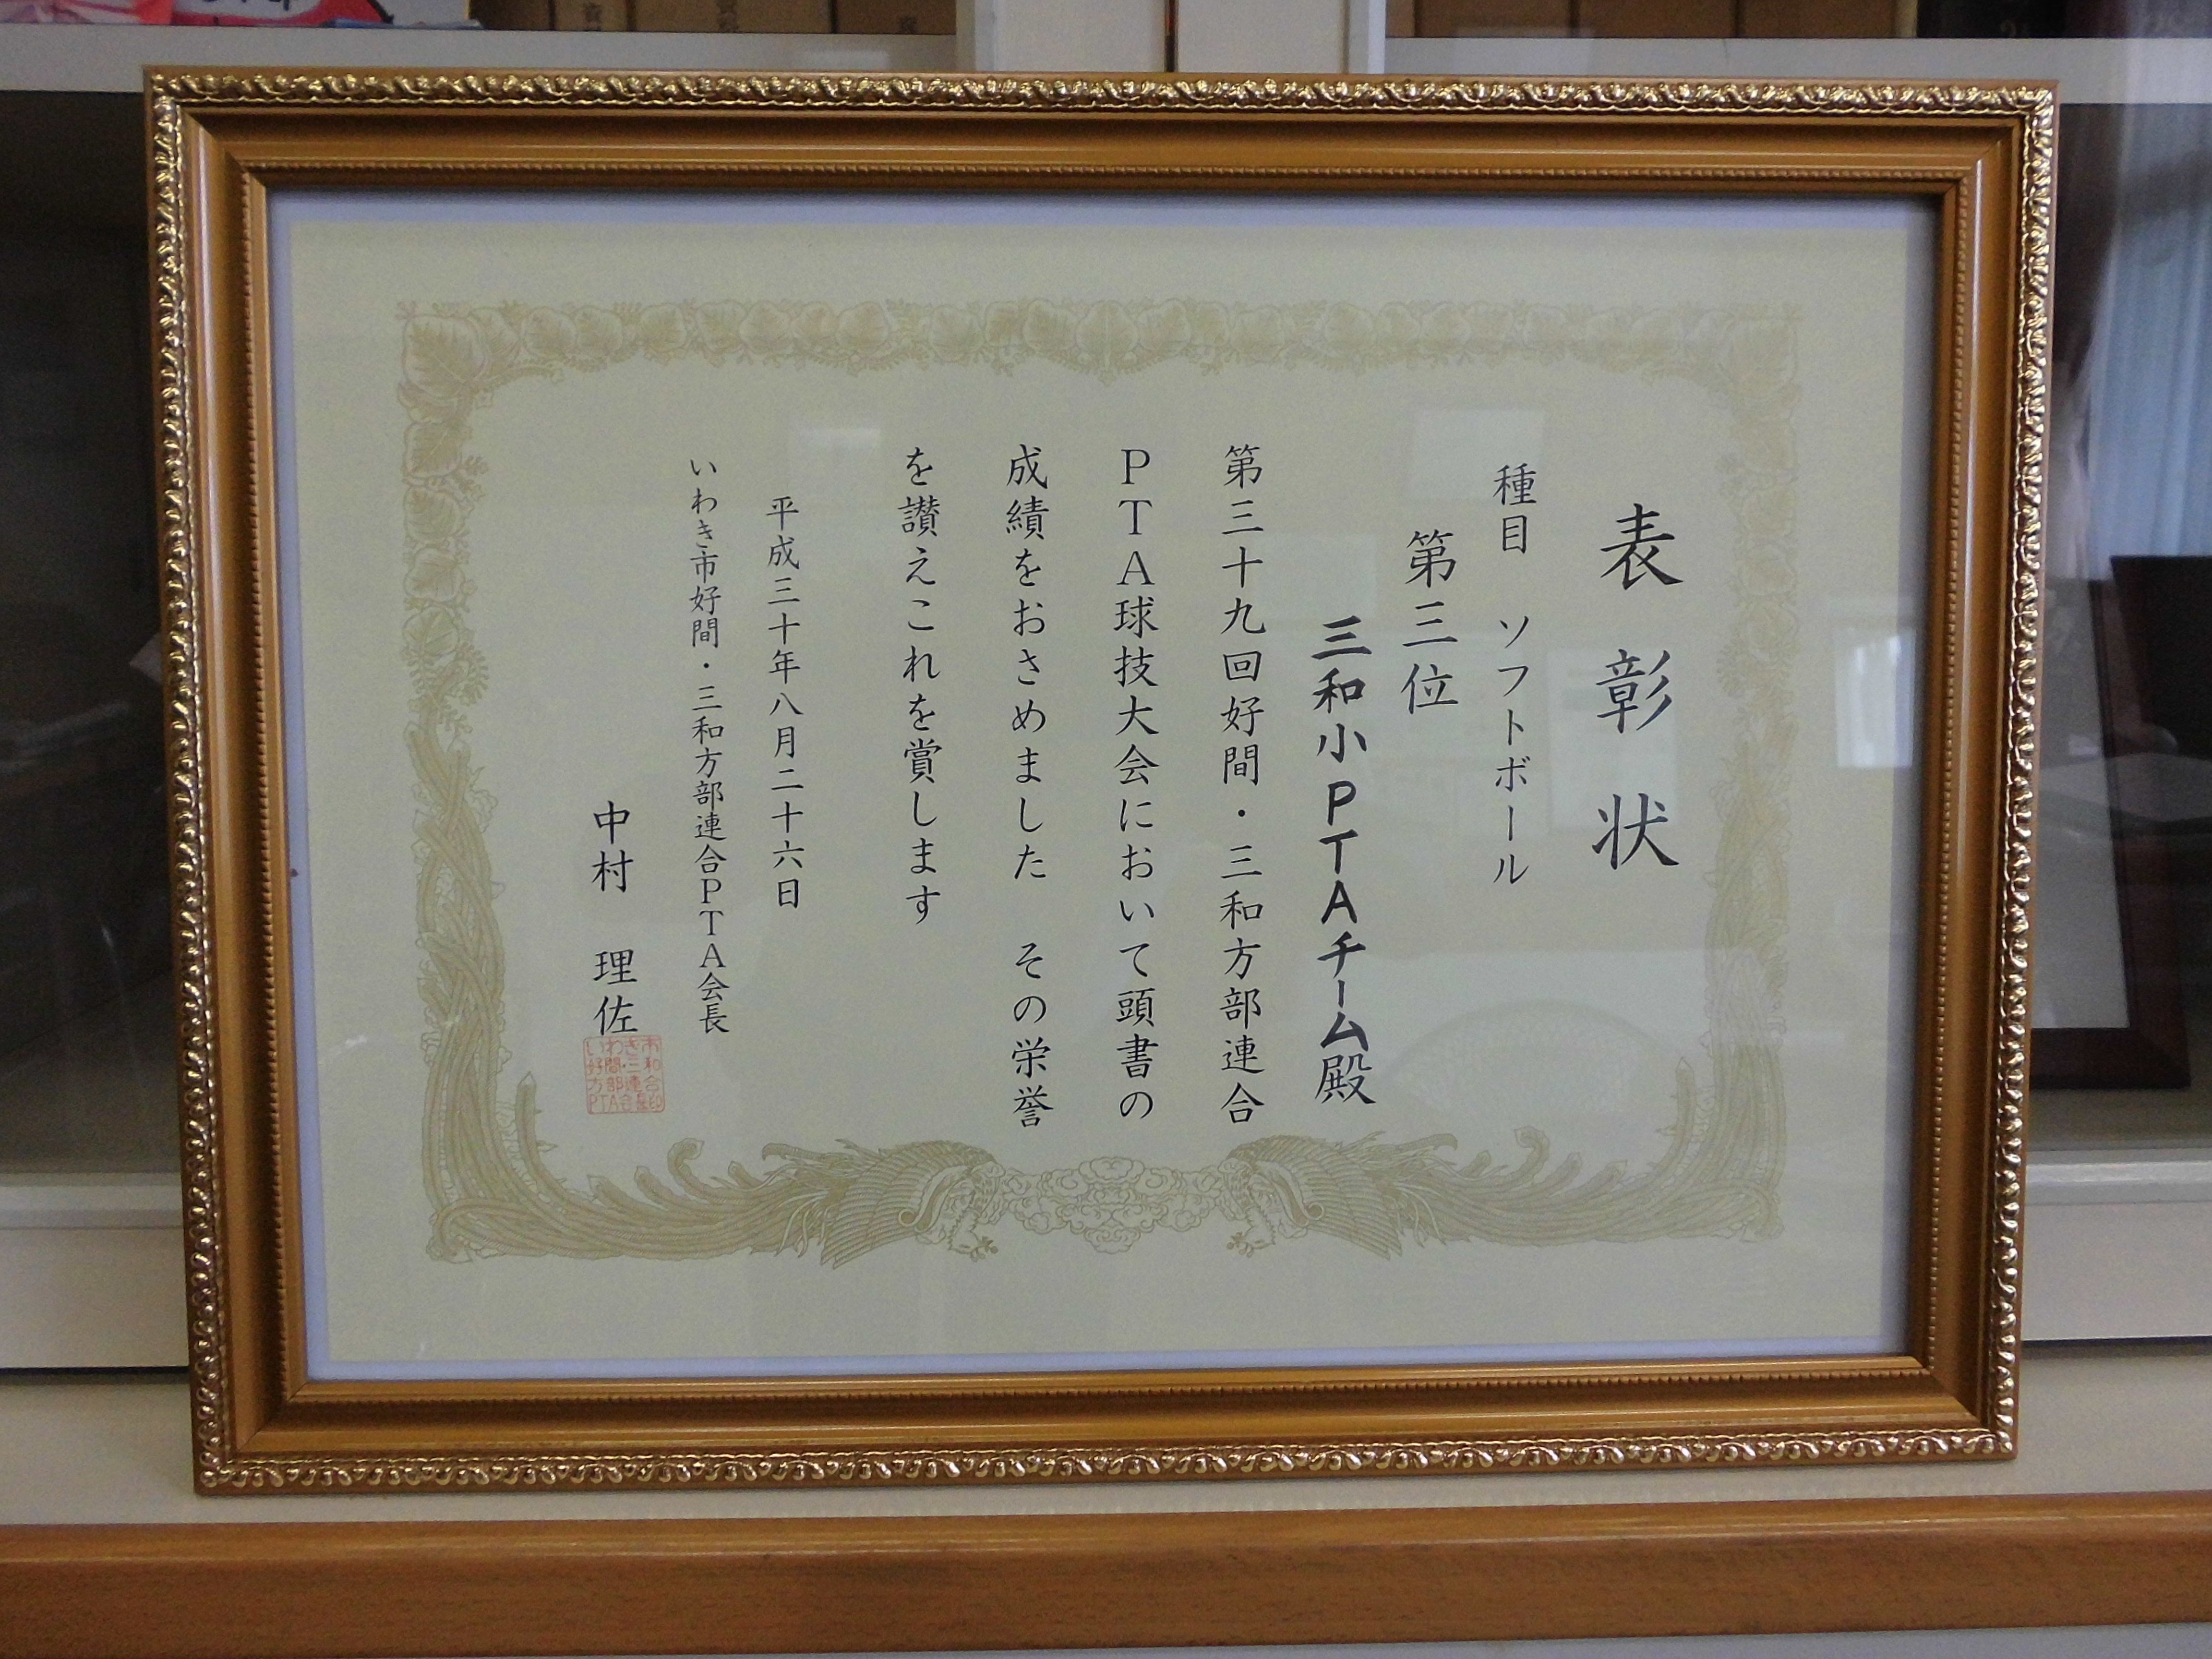 表彰状
種目 ソフトボール
第三位
三和小PTAチーム殿
第三十九回好間・三和方部連合
PTA球技大会において頭書の
成績をおさめました その栄誉
を讃えこれを賞します
平成三十年八月二十六日
いわき市好間・三和方部連合PTA会長
中村 理佐
いわき市
好間・三和
方部連合
PTA会長印